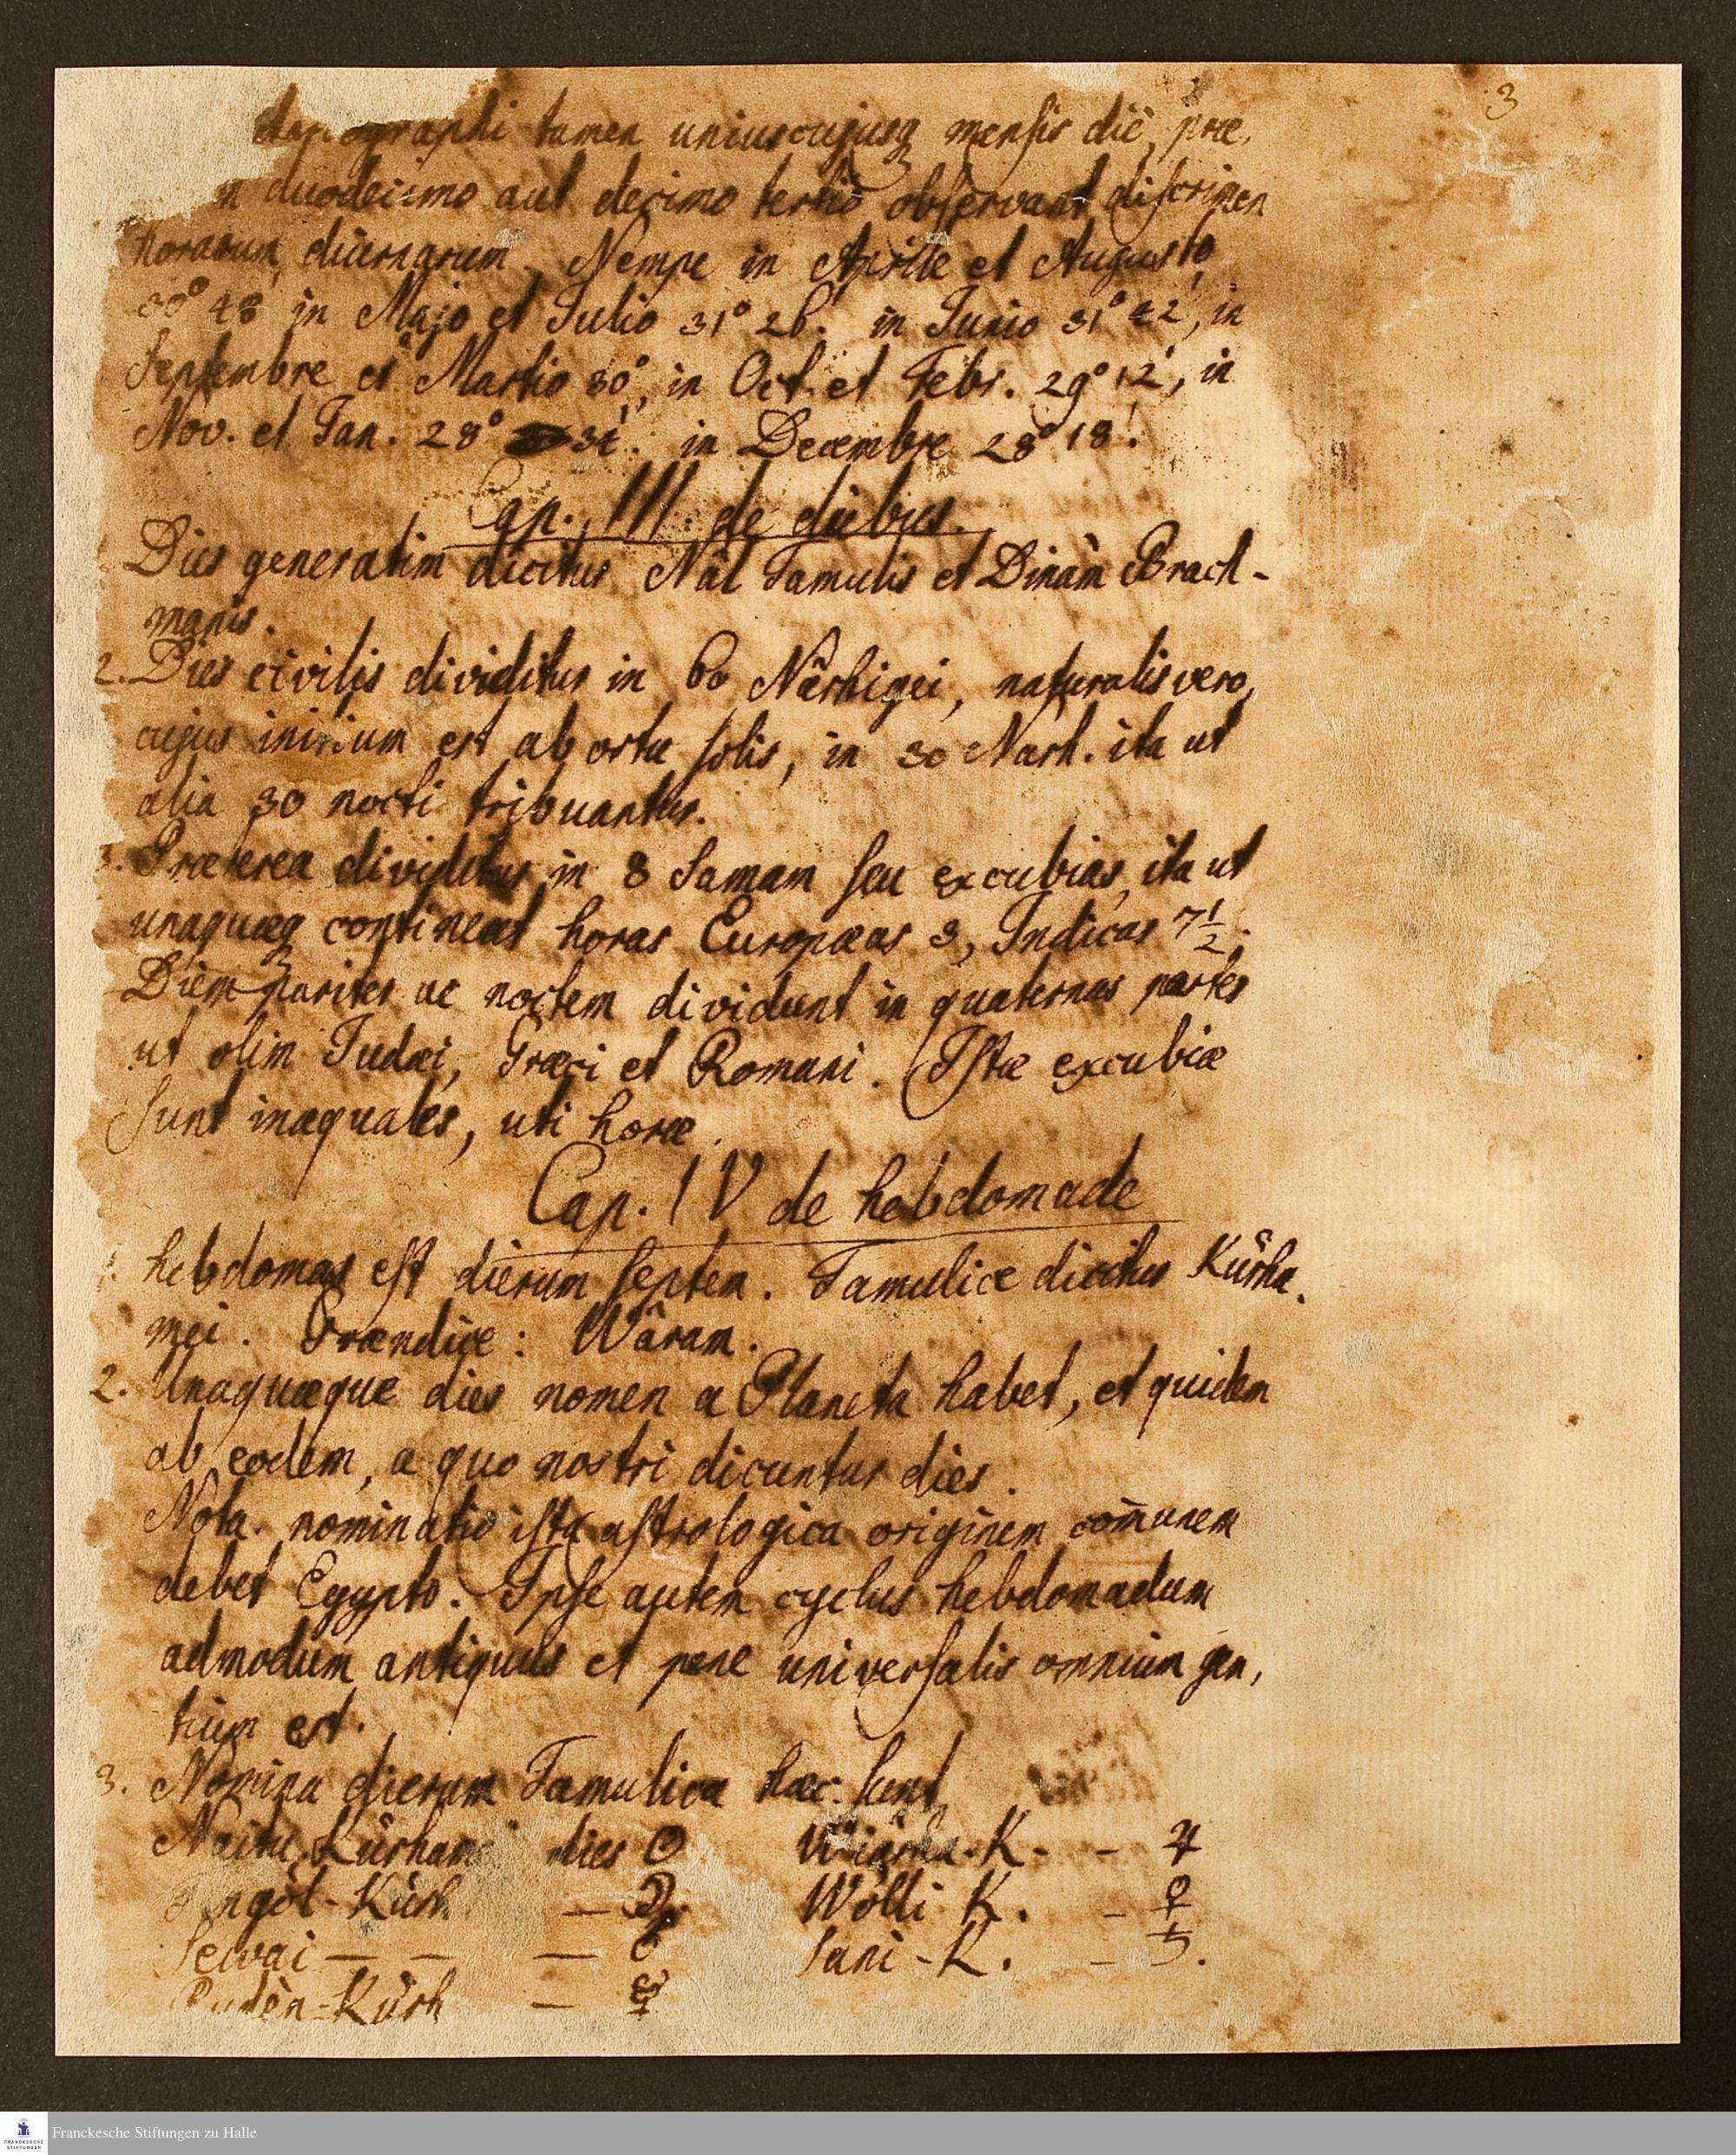 3
tamen uniuscujusq mensis die, præ,
duodecimo aut decimo tertio observant discrimen
horarum diurnarum. Nempe in Aprile et Augusto
30° 48' in Majo et Julio 31° 26'. in Junio 31° 42', in
Septembre et Martio 30°, in Oct. et Febr. 29° 12', in
Nov. et Jan. 28° 34'. in Decembre 28° 18'.
Cap. III. de diebus.
Dies generatim dicitur Nâl Tamulis et Dinàm Brach-
manis.
2. Dies civilis dividitur in 60 Nârhigei, naturalis vero,
cujus initium est ab ortu solis, in 30 Narh. ita ut
alia 30 nocti tribuantur.
3. Præterea dividitur in 8 Samam seu excubias, ita ut
unaquæq contineat horas Europæas 3, Indicas 7 1/2.
Diem pariter ac noctem dividunt in quaternas partes
ut olim Judæi, Græci et Romani. Istæ excubiæ
sunt inæquales, uti horæ.
Cap. IV de hebdomade
hebdomas est dierum septem. Tamulice dicitur Kürha,
mei. Grændice: Wâram.
2. Unaquæque dies nomen a Planeta habet, et quidem
ab eodem, a quo nostri dicuntur dies.
Nota. nominatio ista astrologica originem com̄unem
debet Egypto. Ipse autem cyclus hebdomadum
admodum antiquus et pene universalis omnium gen,
tium est.
3. Nomina dierum Tamulica hæc sunt
Kürham dies ☉ K. - ♃
Kürh — ☽ Wölli K. - ♀
Sewai — — — ♂ Sani-K. - ♄.
Kürh — ☿
Franckesche Stiftungen zu Halle
FRANCKESCHE
STIFTUNGEN